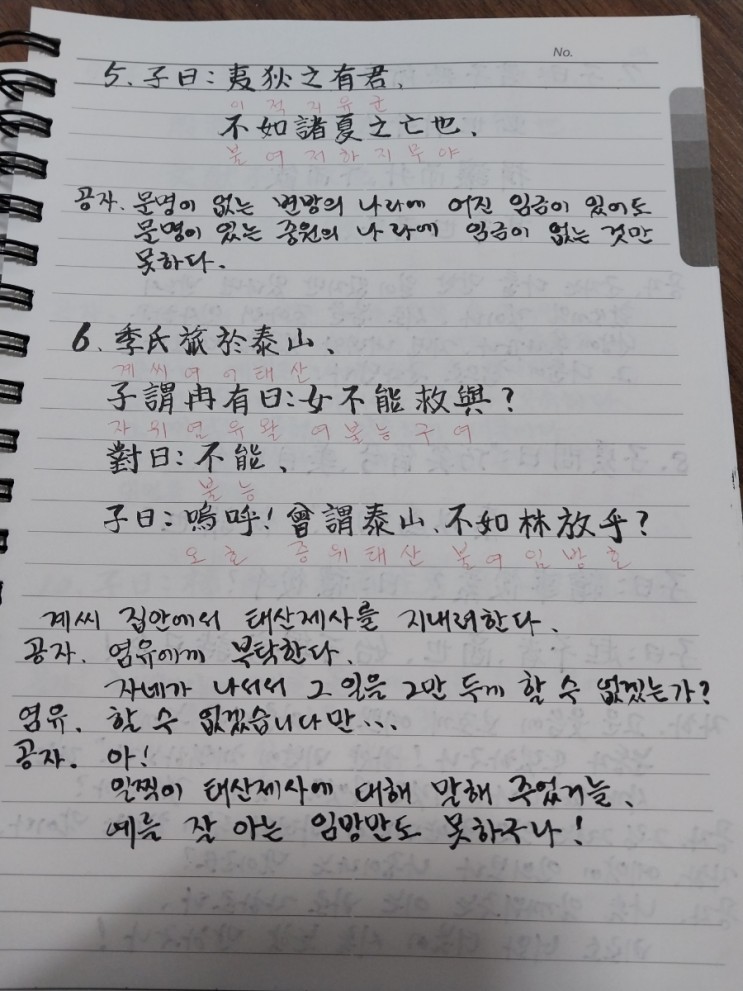 No.
5. 子曰: 夷狄之有君,
이 적 지 유 군
不如諸夏之亡也.
불 여 저 하 지 무 야
공자. 문명이 없는 변방의 나라에 어진 임금이 있어도
문명이 있는 중원의 나라에 임금이 없는 것만
못하다.
6. 季氏旅於泰山,
계 씨 여 어 태 산
子謂冉有曰: 女不能救與?
자 위 염 유 왈 여 불 능 구 여
對曰: 不能,
불 능
子曰: 嗚呼! 曾謂泰山, 不如林放乎?
오 호 증 위 태 산 불 여 임 방 호
계씨 집안에서 태산제사를 지내려한다.
공자. 염유에게 부탁한다.
자네가 나서서 그 일을 그만 두게 할 수 없겠는가?
염유. 할 수 없겠습니다만...
공자. 아!
일찍이 태산제사에 대해 말해 주었거늘,
예를 잘 아는 임방만도 못하구나!